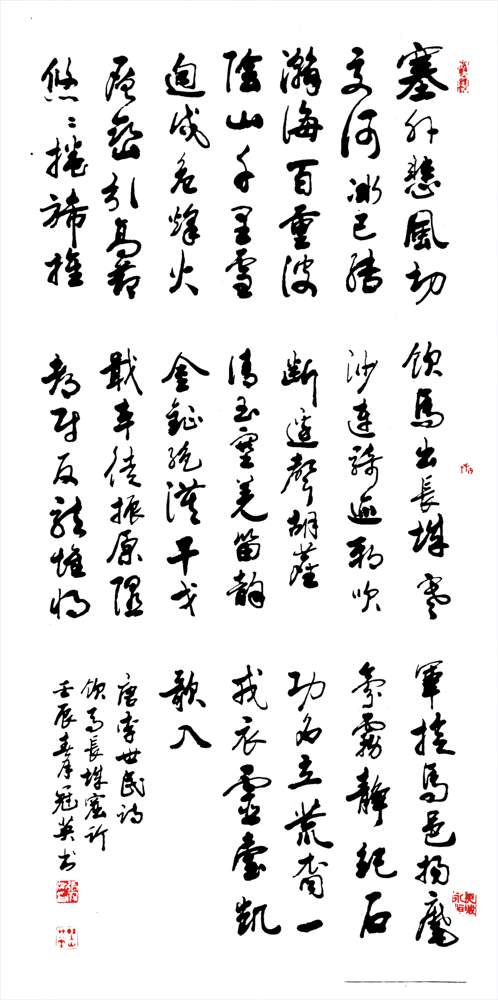 塞外悲風切
交河冰已結
瀚海百重波
陰山千里雪
迥戍危烽火
層巒引高節
悠〻捲旆旌
飲馬出長城寒
沙連騎跡朔吹
斷邊聲胡塵
清玉塞羌笛韻
金鉦絕漠干戈
戢車徒振原隰
都尉反龍堆將
軍旋馬邑揚麾
氛霧靜紀石
功名立荒裔一
戎衣靈臺凱
歌入
唐李世民詩
飲馬長城窟行
壬辰春冠英书